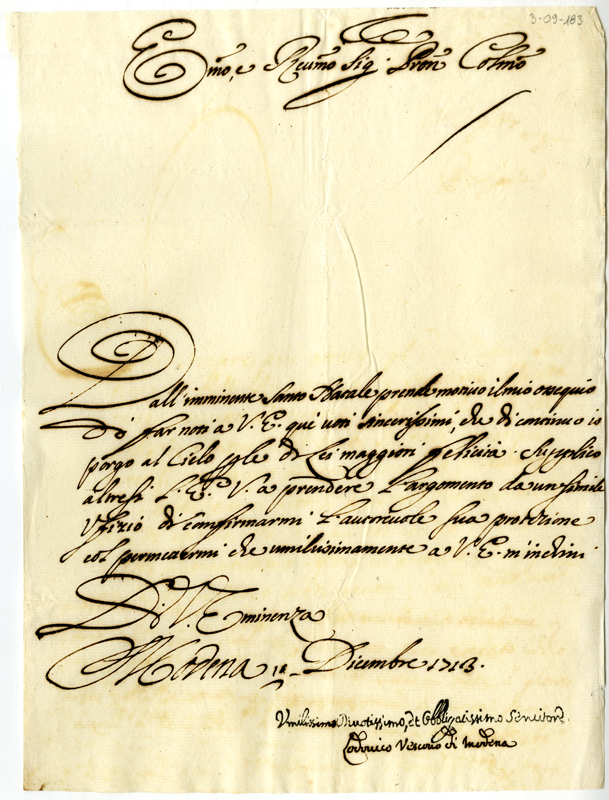 3-09-183
Emo, e Reumo Sig: Pron Colmo
Dall'imminente Santo Natale prende motivo il mio ossequio
di far noti a V. E. que' voti sincerissimi, che di continuo io
porgo al Cielo ple di Lei maggiori felicità. Supplico
altresì L'E. V. a prendere L'argomento da un simile
Uffizio di confirmarmi L'autoreuole sua protezione
col permettermi che umilissimamente a V. E. m'inchini
Di V. Eminenza
Modena Dicembre 1713.
Vmilissimo Diuotissimo, et Obbligatissimo Seruitore
Lodouico Vescouo di Modena